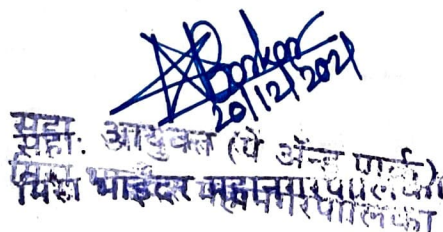 Borkar
20/12/2021
सहा. आयुक्त (पे अॅन्ड पार्क)
मिरा भाईंदर महानगरपालिका